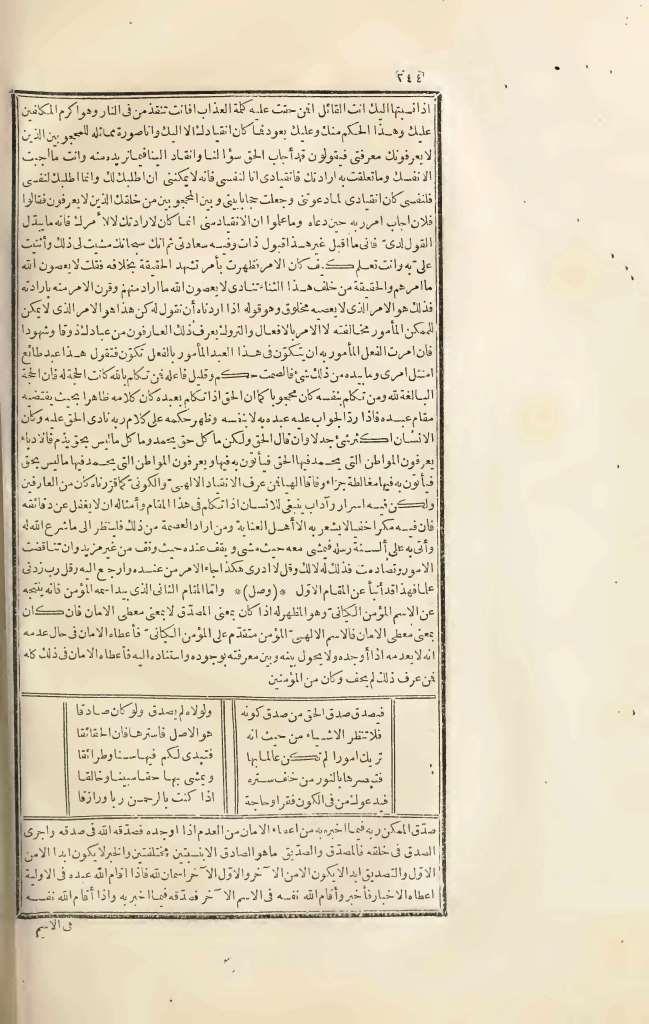 ٢٤٤
اذا نسبتها اليك انت القائل افمن حقت عليه كلمة العذاب افانت تنقذ من فى النار وهو اكرم المكلفين
عليك وهذا الحكم منك وعليك يعود فما كان انقيادك الا اليك وانا صورة مماثلة للمحجوبين الذين
لا يعرفونك معرفتى فيقولون قد أجاب الحق سؤالنا وانقاد الينا فيما نريده منه وانت ما أجبت
الا نفسك وما تعلقت به ارادتك فانقيادى انا لنفسى فانه لا يمكننى أن اطلبك لك وانما اطلبك لنفسى
فلنفسى كان انقيادى لما دعوتنى وجعلت حجابا بينى وبين المحجوبين من خلقك الذين لا يعرفون فقالوا
فلان اجاب امر ربه حين دعاه وما علموا ان الانقياد منى انما كان لارادتك لا لأمرك فانه ما يبدل
القول لدىّ فانى ما اقبل غير هذا قبول ذات وفيه سعادتى ثم انك سبحانك مشيت لى ذلك وأثنيت
علىّ به وانت تعلم كيف كان الامر فظهرت بأمر تشهد الحقيقة بخلافه فقلت لا يعصون الله
ما امرهم والحقيقة من خلف هذا الثناء تنادى لا يعصون الله ما اراد منهم وقرن الامر منه بارادته
فذلك هو الامر الذى لا يعصيه مخلوق وهو قوله اذا اردناه أن نقول له كن هذا هو الامر الذى لا يمكن
للممكن المأمور مخالفته لا الامر بالافعال والتروك يعرف ذلك العارفون من عبادك ذوقا وشهودا
فان امرت الفعل المأمور به ان يتكوّن فى هذا العبد المأمور بالفعل تكوّن فتقول هذا عبد طائع
امتثل امرى وما بيده من ذلك شئ فالصمت حكم وقليل فاعله فمن تكلم بالله كانت الحجة له فان الحجة
البالغة لله ومن تكلم بنفسه كان محجوجا كما ان الحق اذا تكلم بعبده كان كلامه ظاهرا بحيث يقتضيه
مقام عبده فاذا ردّ الجواب عليه عبده به لا بنفسه وظهر حكمه على كلام ربه نادى الحق عليه وكان
الانسان اكثر شئ جدلا وان قال الحق ولكن ما كل حق يحمد وما كل ما ليس بحق يذم فالادباء
يعرفون المواطن التى يحمد فيها الحق فيأتون به فيها ويعرفون المواطن التى يحمد فيها ما ليس بحق
فيأتون به فيها مغالطة جزاء وفاقا الهيا فمن عرف الانقياد الالهىّ والكونى كما قررناه كان من العارفين
ولكن فيه اسرار وآداب ينبغى للانسان اذا تكلم فى هذا المقام وأمثاله ان لا يغفل عن دقائقه
فان فيه مكرا خفيا لا يشعر به الا أهل العناية ومن اراد العصمة من ذلك فلينظر الى ما شرع الله له
وأتى به على ألسنة رسله فيمشى معه حيث مشى ويقف عنده حيث وقف من غير مزيد وان تناقضت
الامور وتصادمت فذلك له لا لك وقل لا ادرى هكذا جاء الامر من عنده وارجع اليه وقل رب زدنى
علما فهذا قد أنبأ عن المقام الاول *(وصل)* واما المقام الثانى الذى بيد اسمه المؤمن فانه ينتجه
عن الاسم المؤمن الكيانىّ وهو المظهر له اذا كان بمعنى المصدّق لا بمعنى معطى الامان فان كان
بمعنى معطى الامان فالاسم الالهىّ المؤمن متقدّم على المؤمن الكيانىّ فأعطاه الامان فى حال عدمه
انه لا يعدمه اذا أوجده ولا يحول بينه وبين معرفته بوجوده واستناده اليه فأعطاه الامان فى ذلك كله
فمن عرف ذلك لم يخف وكان من المؤمنين
فيصدق صدق الحق من صدق كونه ولولاه لم يصدق ولو كان صادقا
فلا تنظر الاشياء من حيث انه هو الاصل فاستر هافان الحقائقا
تريك امورا لم تكن عالما بها فتبدى لكم فيها سنا وطرائقا
فتبصرها بالنور من خلف ستره ويمشى بها حقا مبينا وخالقا
فيدعوك من فى الكون فقرا وحاجة اذا كنت بالرحمن ربا ورازقا
صدق الممكن ربه فيما اخبره به من اعطاء الامان من العدم اذا اوجده فصدّقه الله فى صدقه واجرى
الصدق فى خلقه فالمصدّق والصدّيق ما هو الصادق الا بنسبتين مختلفتين والخبر لا يكون ابدا الا من
الاول والتصديق ابدا لا يكون الا من الآخر والاول الآخر اسمان لله فاذا اقام الله عبده فى الاولية
اعطاه الاخبار فأخبر وأقام الله نفسه فى الاسم الآخر فصدّقه فيما اخبر به واذا أقام الله نفسه
فى الاسم